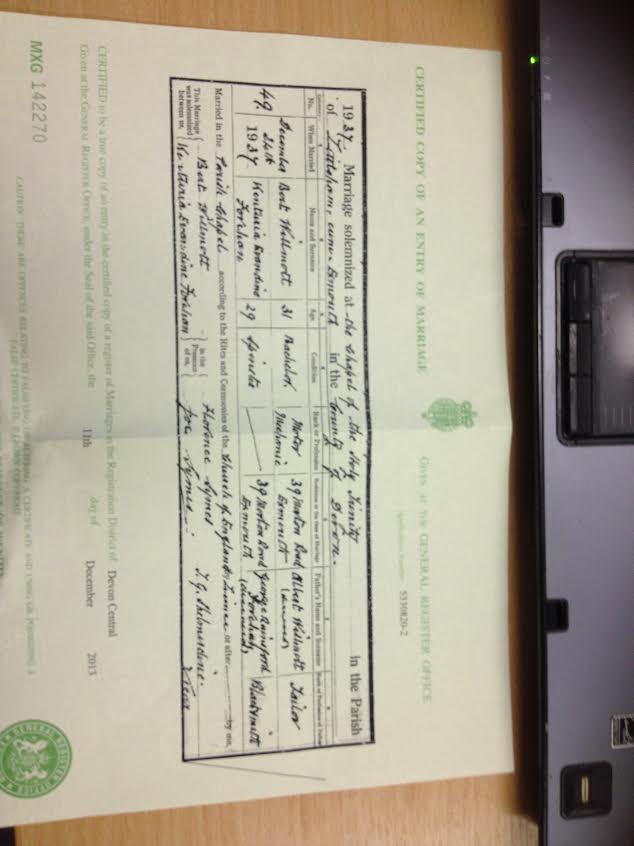 CERTIFIED COPY OF AN ENTRY OF MARRIAGE
GIVEN AT THE GENERAL REGISTER OFFICE
Application Number 5330820-2
1937. Marriage solemnized at the Chapel of the Holy Trinity in the Parish
of Littleham, cum Exmouth in the County of Devon.
No. When Married Name and Surname Age Condition Rank or Profession Residence at the time of Marriage Father's Name and Surname Rank or Profession of Father
49 December 24th 1937 Bert Willmott 31 Bachelor Motor Mechanic 39 Morton Road Exmouth Albert Willmott Tailor
Evandine 29 Spinster 39 Morton Road Exmouth George (deceased) Blacksmith
Married in the Parish Chapel according to the Rites and Ceremonies of the Church of England by Licence or after by me,
This Marriage was solemnized between us, Bert Willmott in the Presence of us, Florence Symes
Evandine Joe Symes
Vicar
CERTIFIED to be a true copy of an entry in the certified copy of a register of Marriages in the Registration District of Devon Central
Given at the GENERAL REGISTER OFFICE, under the Seal of the said Office, the 11th day of December 2013
MXG 142270
CAUTION: THERE ARE OFFENCES RELATING TO FALSIFYING OR ALTERING A CERTIFICATE AND USING OR POSSESSING A
FALSE CERTIFICATE
GENERAL REGISTER OFFICE